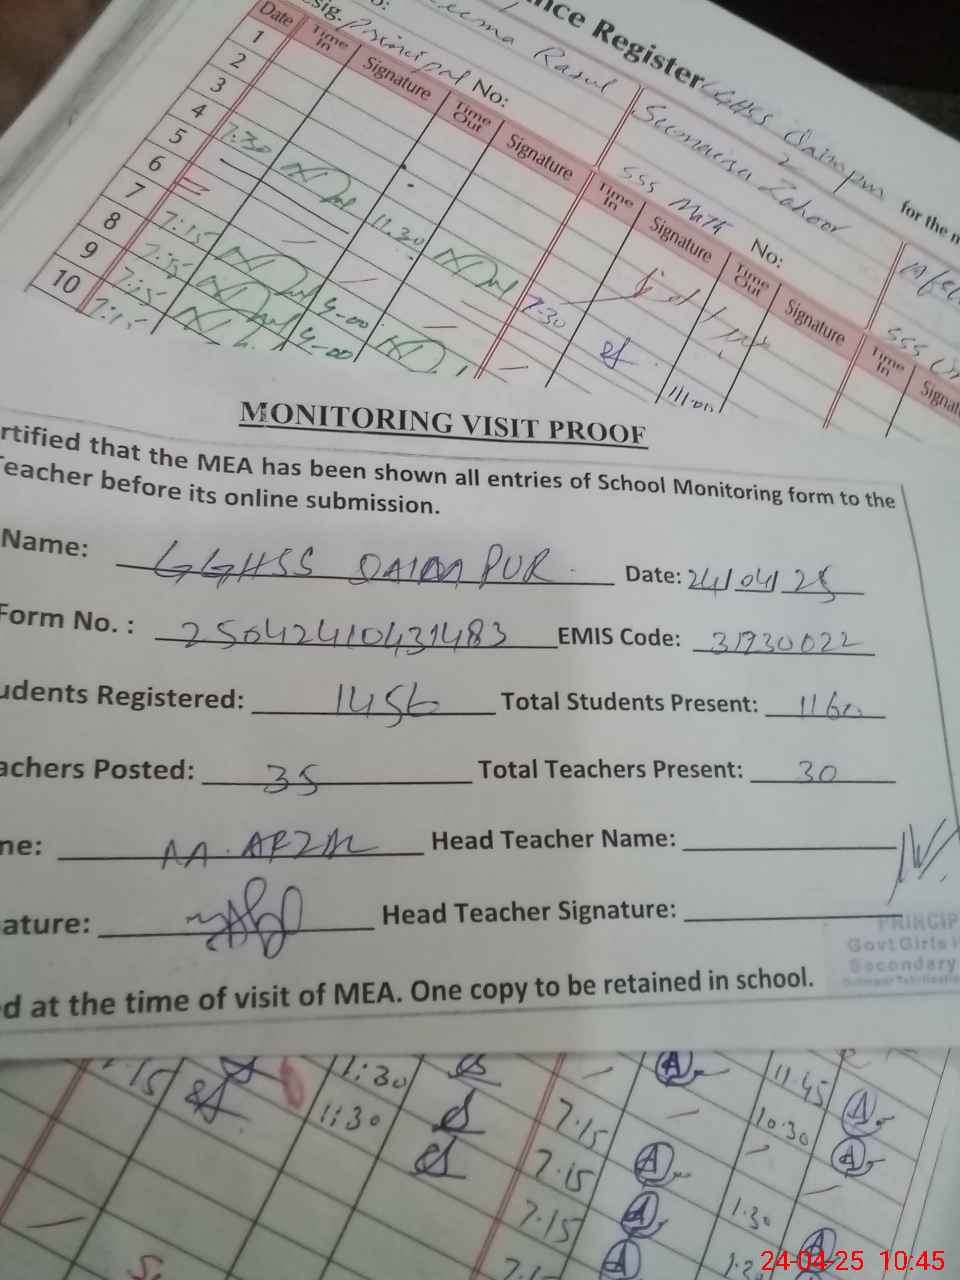 nce Register
for the m
sig. Principal No:
Date Time In Signature Time Out Signature Time In Signature Time Out Signature Time In Signat
SSS Math No:
1
2
3
4
5
6
7
8
9
10
7:30
11.30
7:15
7:15
4-00
7:15
4-00
7:15
7-30
MONITORING VISIT PROOF
rtified that the MEA has been shown all entries of School Monitoring form to the
Teacher before its online submission.
Name: GGHSS DAIM PUR Date: 24/04/25
Form No. : 25042410431483 EMIS Code: 31230022
udents Registered: 1456 Total Students Present: 1160
achers Posted: 35 Total Teachers Present: 30
ne: M. AFZAL Head Teacher Name:
ature: Head Teacher Signature:
PRINCIP
Govt Girls H
Secondary
d at the time of visit of MEA. One copy to be retained in school.
7.15 11:30 11.45
11:30 7.15 10.30
7.15
7.15 1.30
24-04-25 10:45